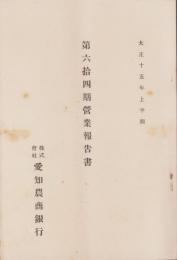 大正十五年上半期
第六拾四期營業報告書
株式會社 愛知農商銀行